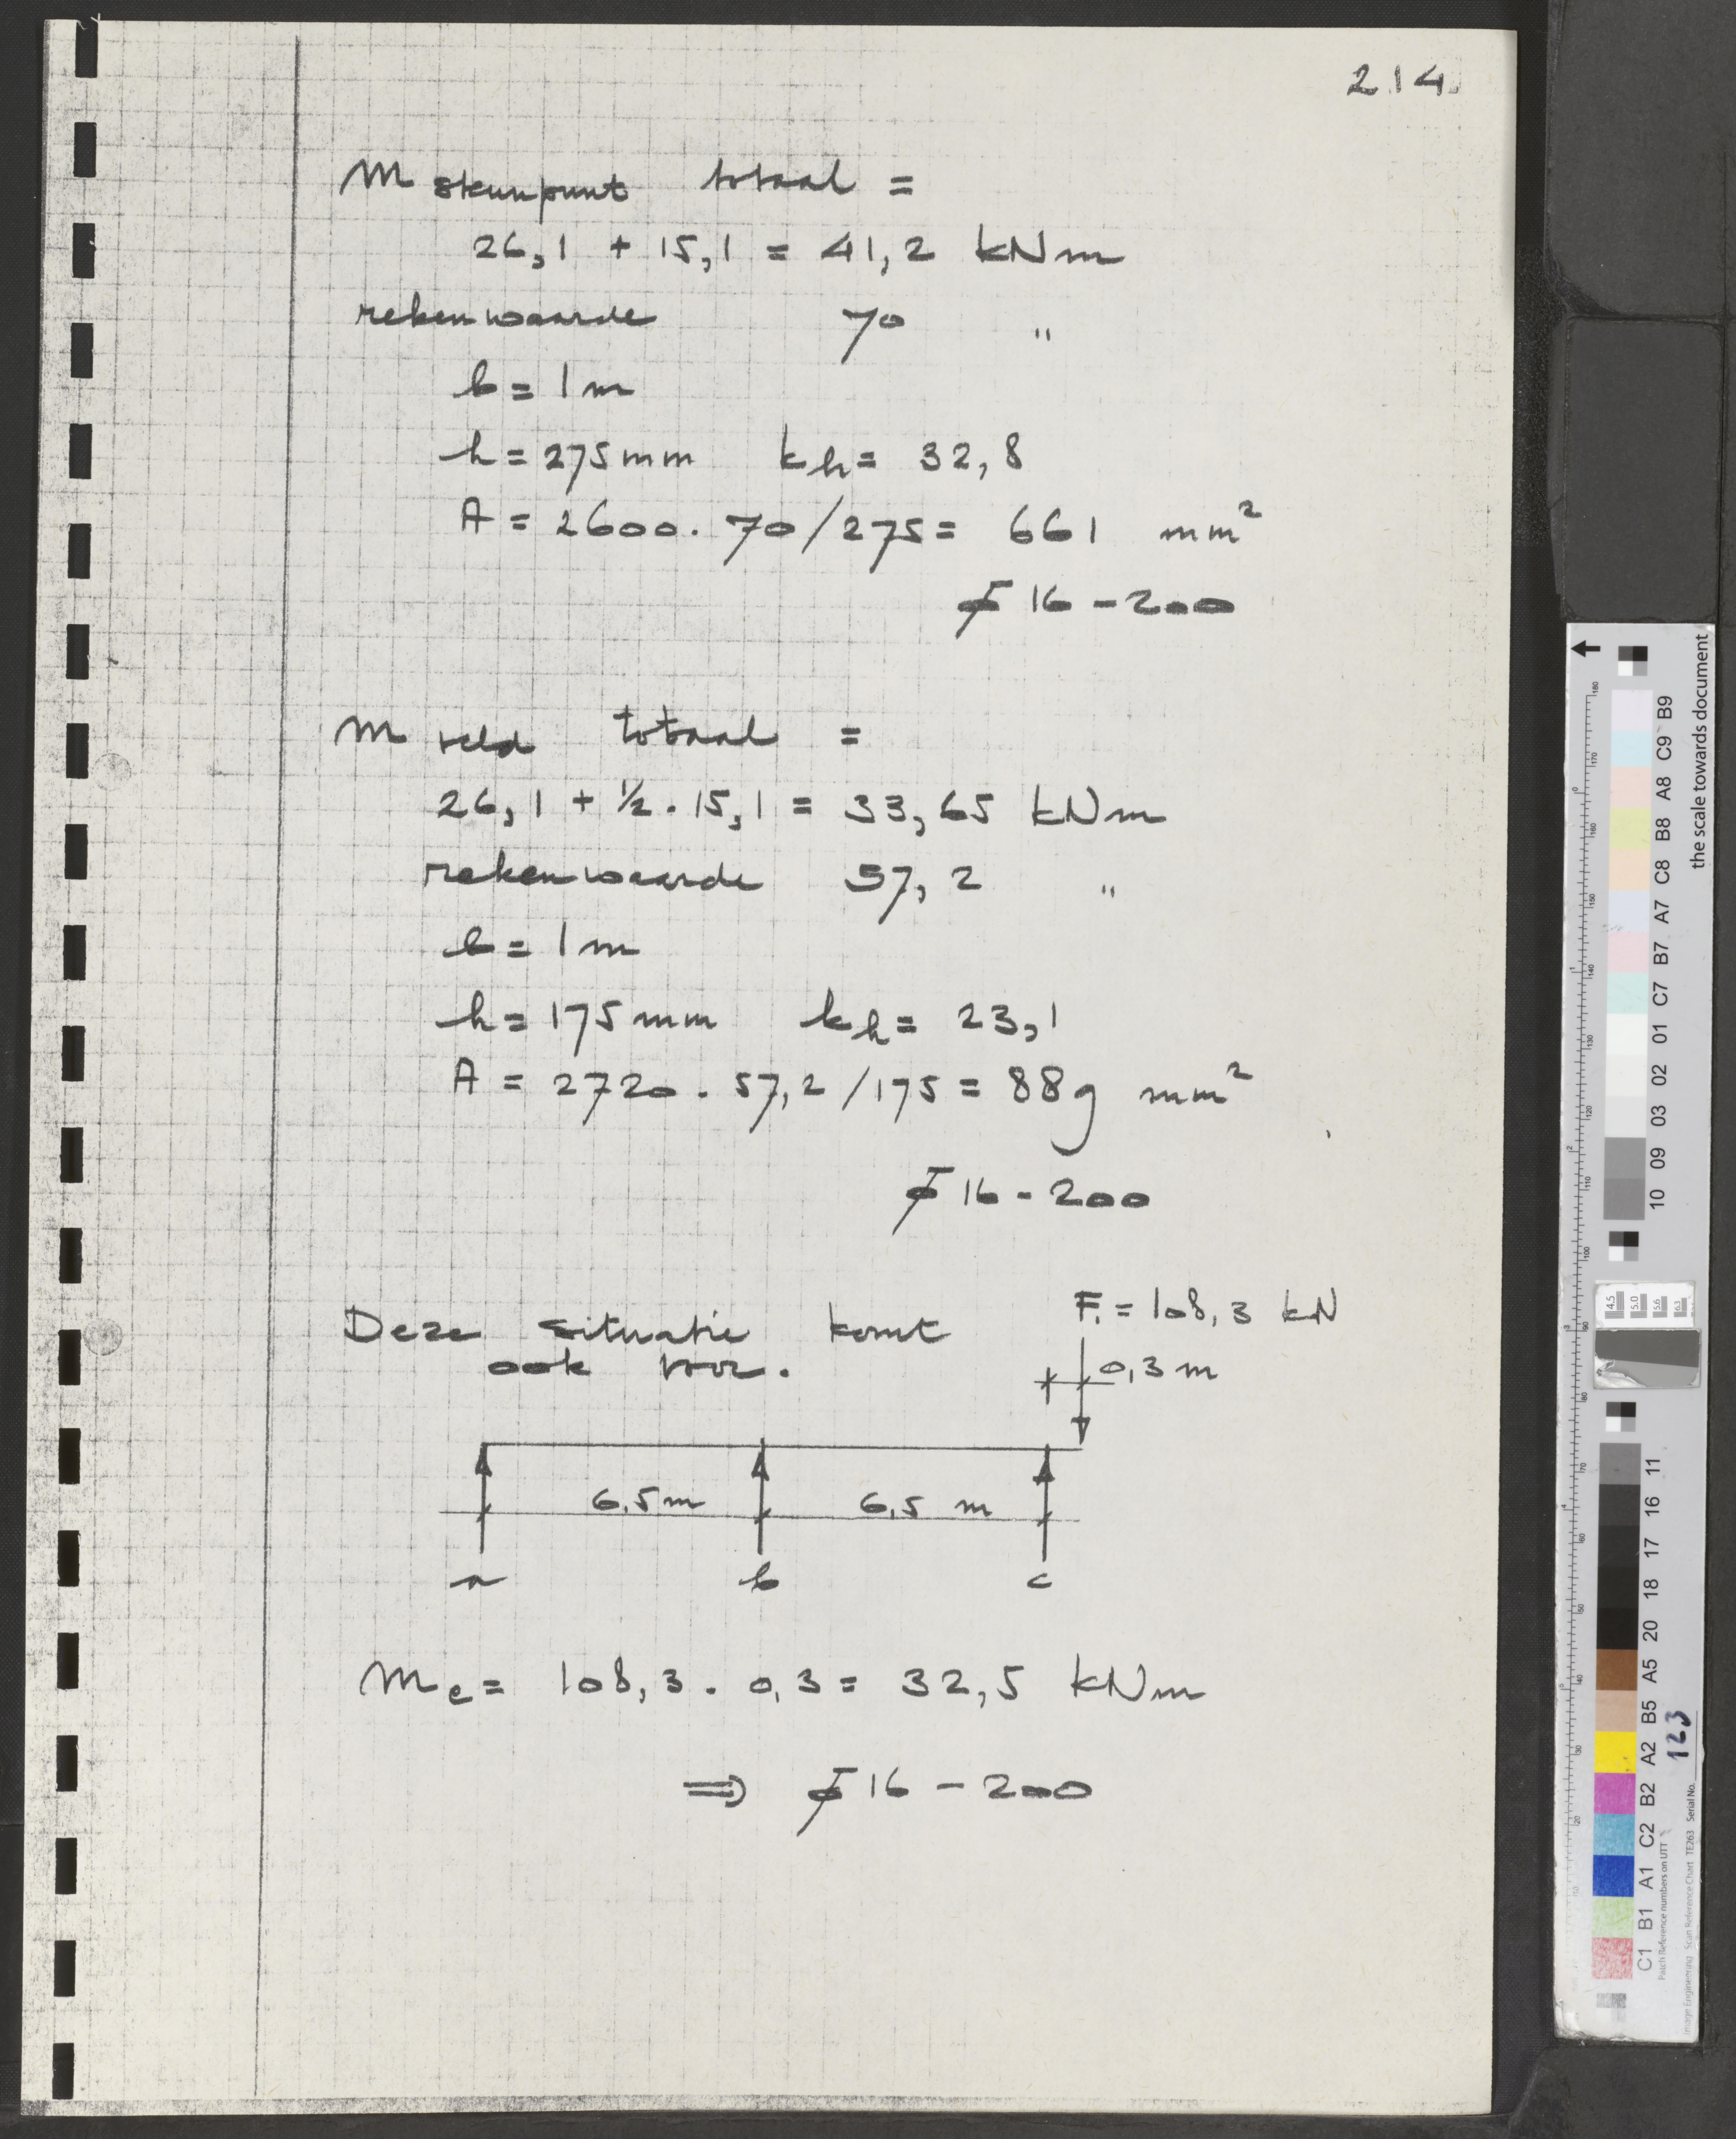 214.
M steunpunt totaal =
26,1 + 15,1 = 41,2 kNm
rekenwaarde 70 "
b = 1 m
h = 275 mm kh = 32,8
A = 2600 . 70 / 275 = 661 mm²
ϕ 16 - 200
M veld totaal =
26,1 + ½ . 15,1 = 33,65 kNm
rekenwaarde 57,2 "
b = 1 m
h = 175 mm kh = 23,1
A = 2720 . 57,2 / 175 = 889 mm²
ϕ 16 - 200
Deze situatie komt
ook voor.
F. = 108,3 kN
0,3 m
6,5 m 6,5 m
a b c
Mc = 108,3 . 0,3 = 32,5 kNm
⇒ ϕ 16 - 200
the scale towards document
B9 C9 A8 B8 C8 A7 B7 C7 01 02 03 09 10
11 16 17 18 20 A5 B5 A2 B2 C2 A1 B1 C1
4.5 5.0 5.6 6.3
180 170 160 150 140 130 120 110 100 90 80 70 60 50 40 30 20 10
Patch Reference numbers on UTT
Image Engineering Scan Reference Chart TE263 Serial No. 123